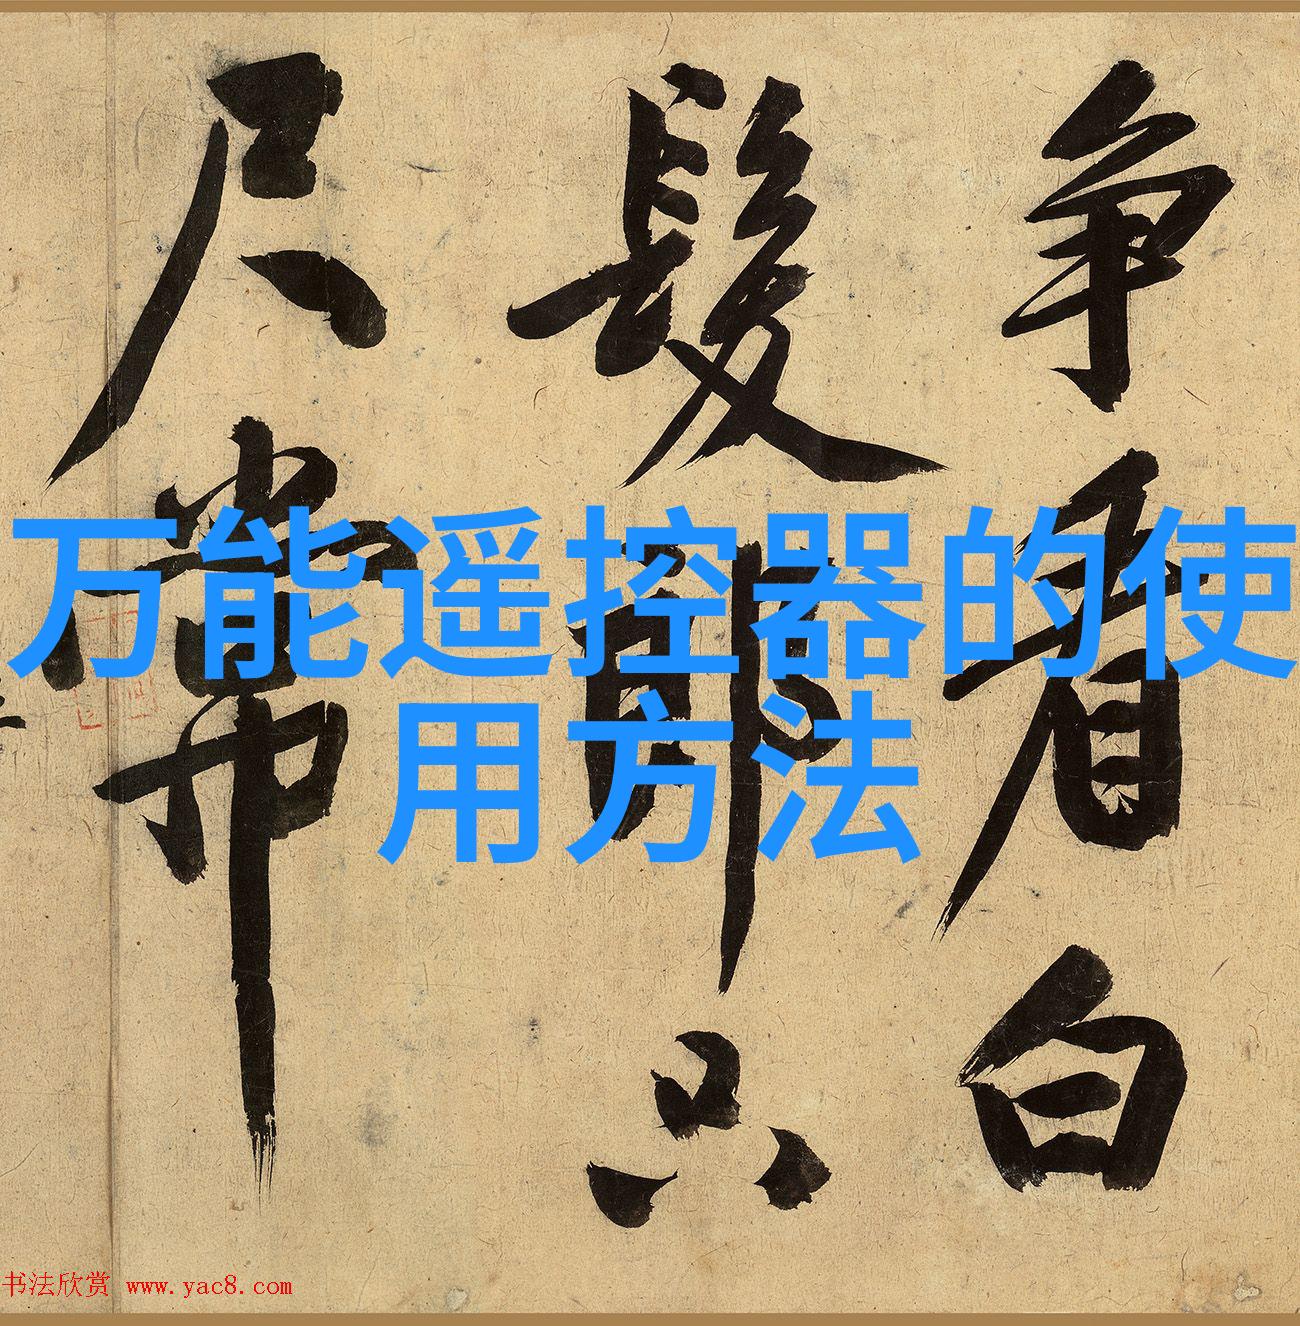 万能遥控器的使
用方法
争看白
髮郎只
尺常
书法欣赏 www.yac8.com